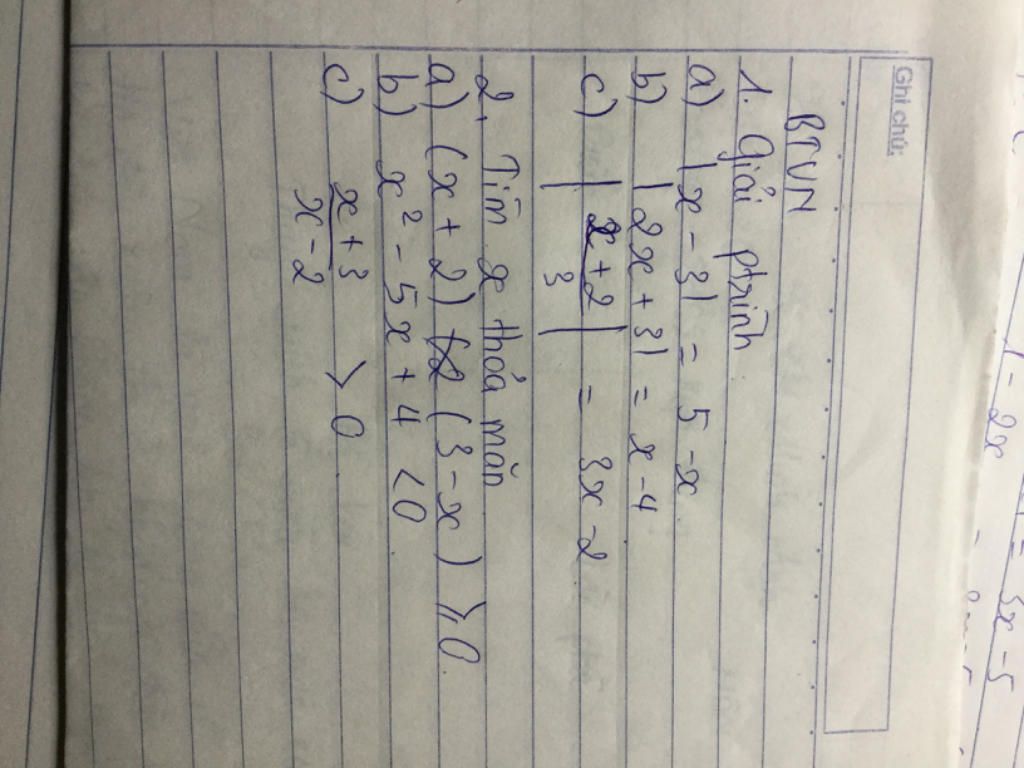 Ghi chú:
BTVN
1. Giải ptrình
a) |x - 3| = 5 - x
b) |2x + 3| = x - 4
c) |x + 2 / 3| = 3x - 2
2. Tìm x thoả mãn
a) (x + 2) (3 - x) ≥ 0.
b) x² - 5x + 4 < 0
c) x + 3 / x - 2 > 0
1 - 2x
3x - 5